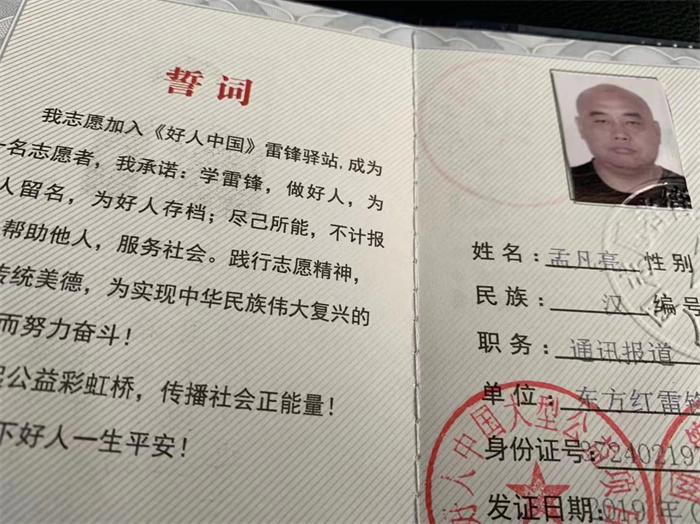 誓词
我志愿加入《好人中国》雷锋驿站,成为
一名志愿者，我承诺：学雷锋，做好人，为
人留名，为好人存档；尽己所能，不计报
帮助他人，服务社会。践行志愿精神，
传统美德，为实现中华民族伟大复兴的
而努力奋斗！
公益彩虹桥，传播社会正能量！
下好人一生平安！
姓名：孟凡亮 性别
民族：汉 编号
职务：通讯报道
单位：东方红雷锋
身份证号:
发证日期:2019 年
好人中国大型公